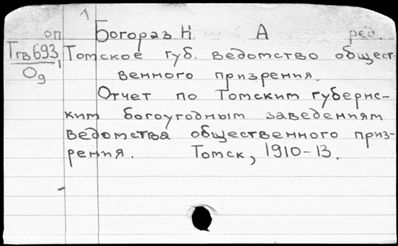 1
оп Богораз Н А рео.
Тгв693 Томское губ. ведомство общест
Од венного призрения.
Отчет по Томским губернс-
ким богоугодным заведениям
ведомства общественного приз-
рения. Томск, 1910-13.